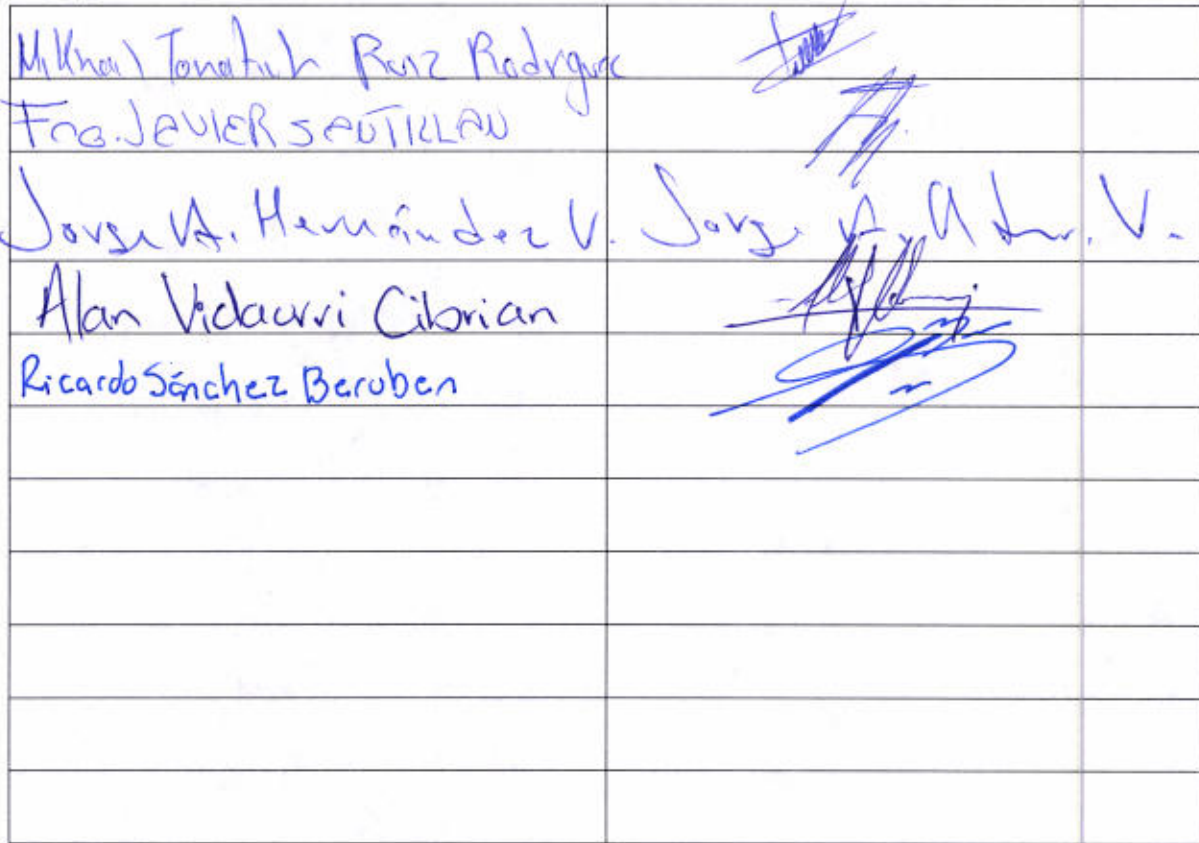 Mikhail Tonatiuh Ruiz Rodrguez
Fco. JAVIER SANTILLAN
Jorge A. Hernández V. Jorge A. V.
Alan Vidaurri Cibrian
Ricardo Sánchez Beruben